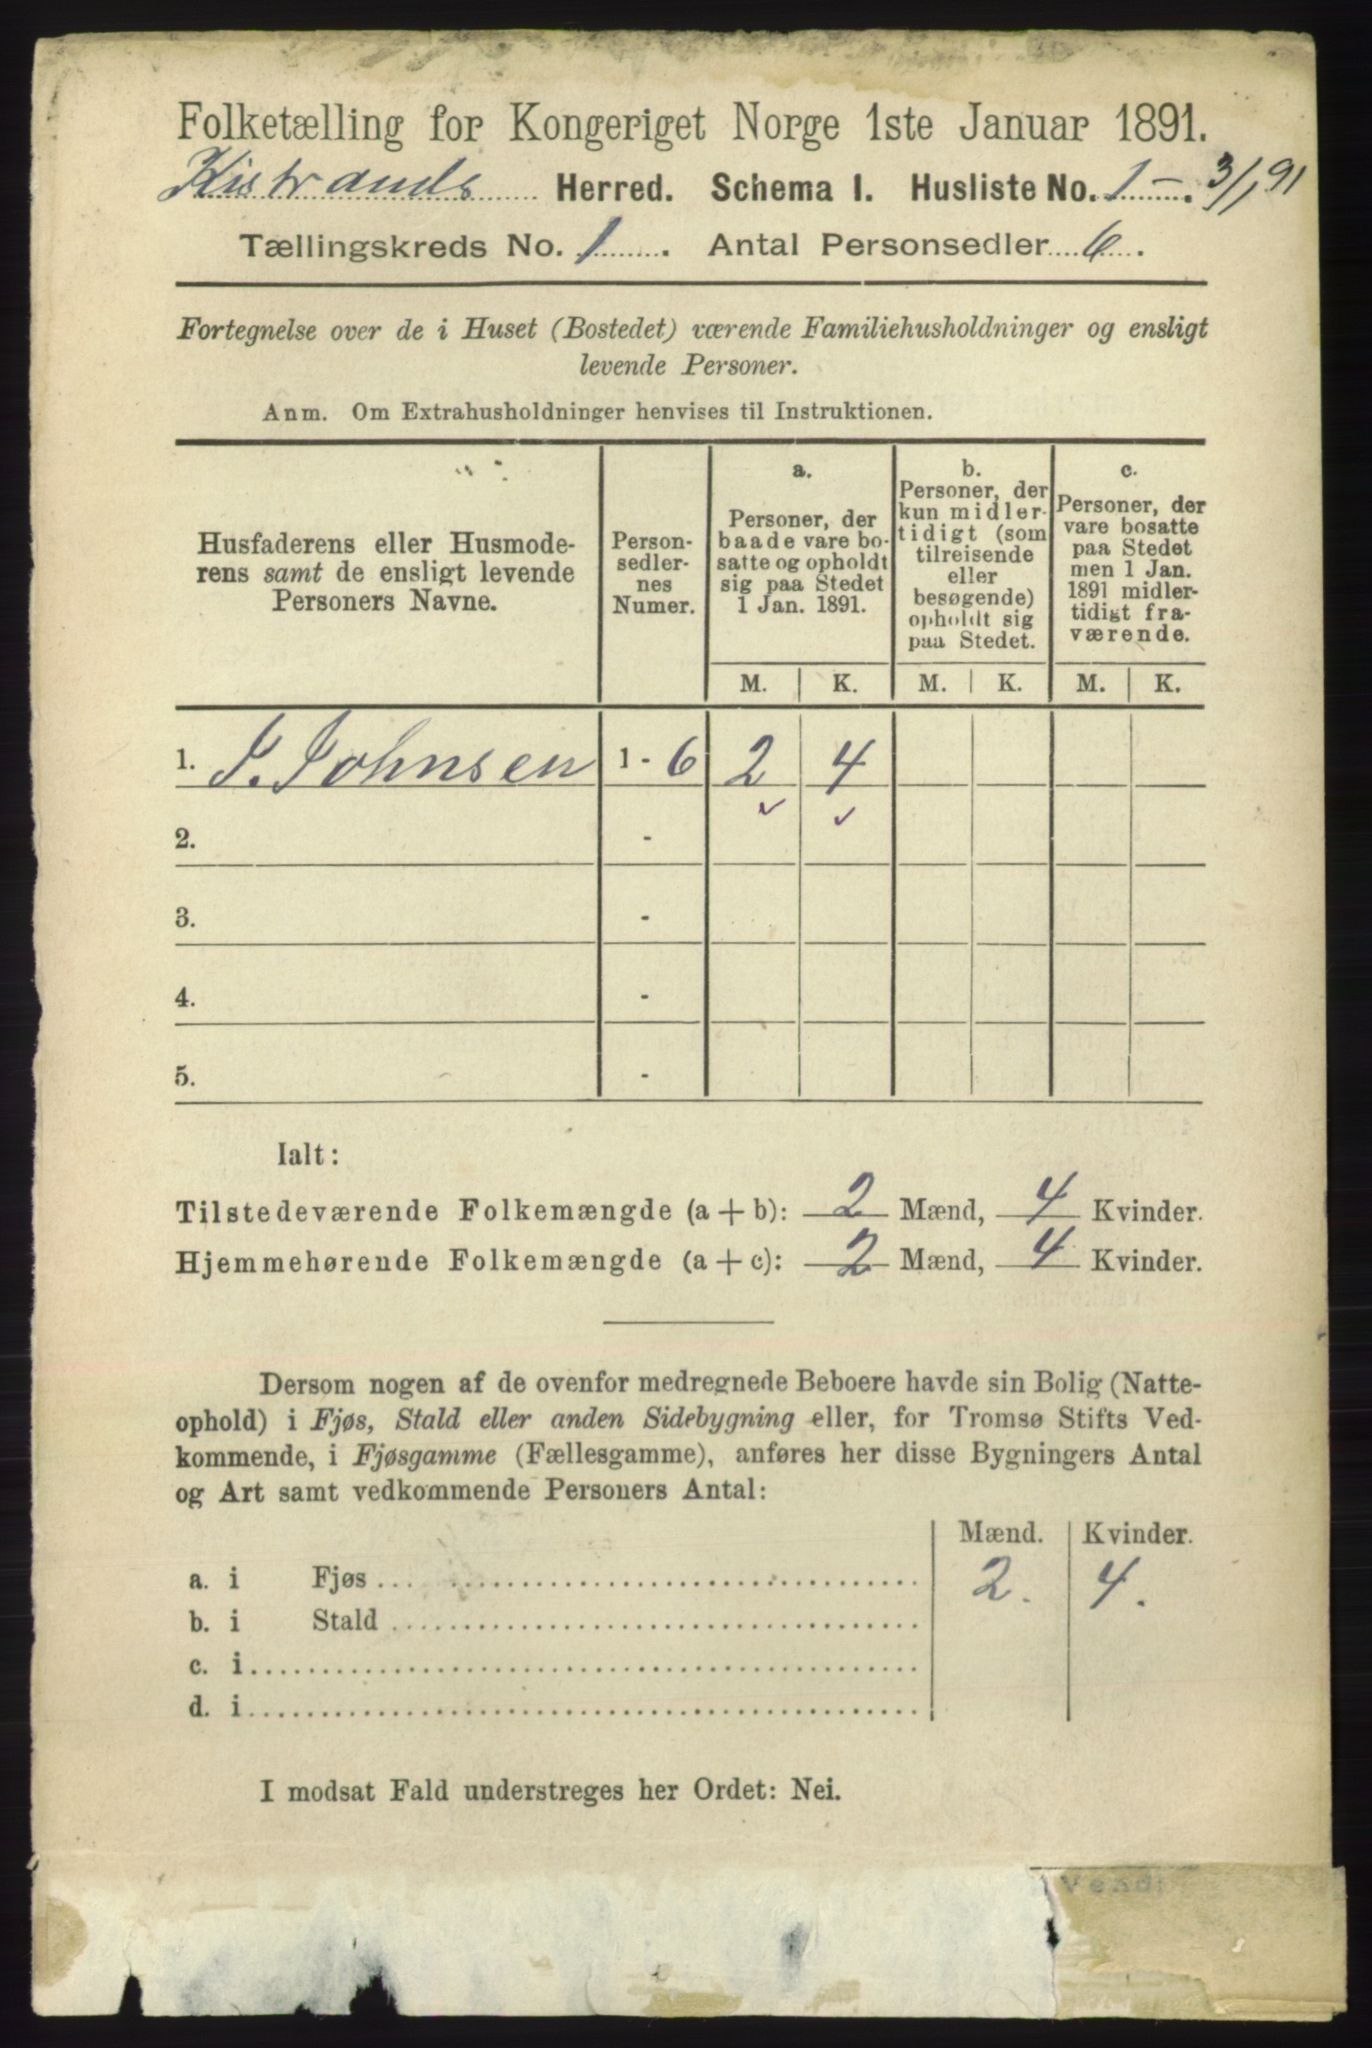 Folketælling for Kongeriget Norge 1ste Januar 1891.
Kistrands Herred. Schema I. Husliste No. 1 - 3/1 91
Tællingskreds No. 1. Antal Personsedler 6.
Fortegnelse over de i Huset (Bostedet) værende Familiehusholdninger og ensligt
levende Personer.
Anm. Om Extrahusholdninger henvises til Instruktionen.
Husfaderens eller Husmode-
rens samt de ensligt levende
Personers Navne.
Person-
sedler-
nes
Numer.
a.
Personer, der
baade vare bo-
satte og opholdt
sig paa Stedet
1 Jan. 1891.
b.
Personer, der
kun midler-
tidigt (som
tilreisende
eller
besøgende)
opholdt sig
paa Stedet.
c.
Personer, der
vare bosatte
paa Stedet
men 1 Jan.
1891 midler-
tidigt fra-
værende.
M. K. M. K. M. K.
1. J. Johnsen 1 - 6 2 4
2. -
3. -
4. -
5. -
Ialt:
Tilstedeværende Folkemængde (a + b): 2 Mænd, 4 Kvinder.
Hjemmehørende Folkemængde (a + c): 2 Mænd, 4 Kvinder.
Dersom nogen af de ovenfor medregnede Beboere havde sin Bolig (Natte-
ophold) i Fjøs, Stald eller anden Sidebygning eller, for Tromsø Stifts Ved-
kommende, i Fjøsgamme (Fællesgamme), anføres her disse Bygningers Antal
og Art samt vedkommende Personers Antal:
Mænd. Kvinder.
a. i Fjøs 2. 4.
b. i Stald
c. i
d. i
I modsat Fald understreges her Ordet: Nei.
Vend!